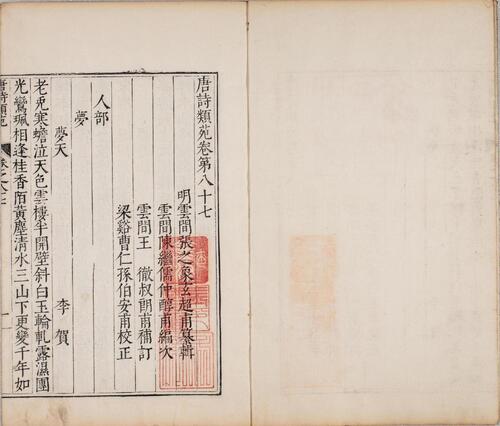 唐詩類苑卷第八十七
明雲間張之象玄超甫纂輯
雲間陳繼儒仲醇甫編次
雲間王徹叔朗甫補訂
梁谿曹仁孫伯安甫校正
人部
夢
夢天 李賀
老兎寒蟾泣天色雲樓半開壁斜白玉輪軋露濕團
光鸞珮相逢桂香陌黃塵清水三山下更變千年如
唐詩類苑